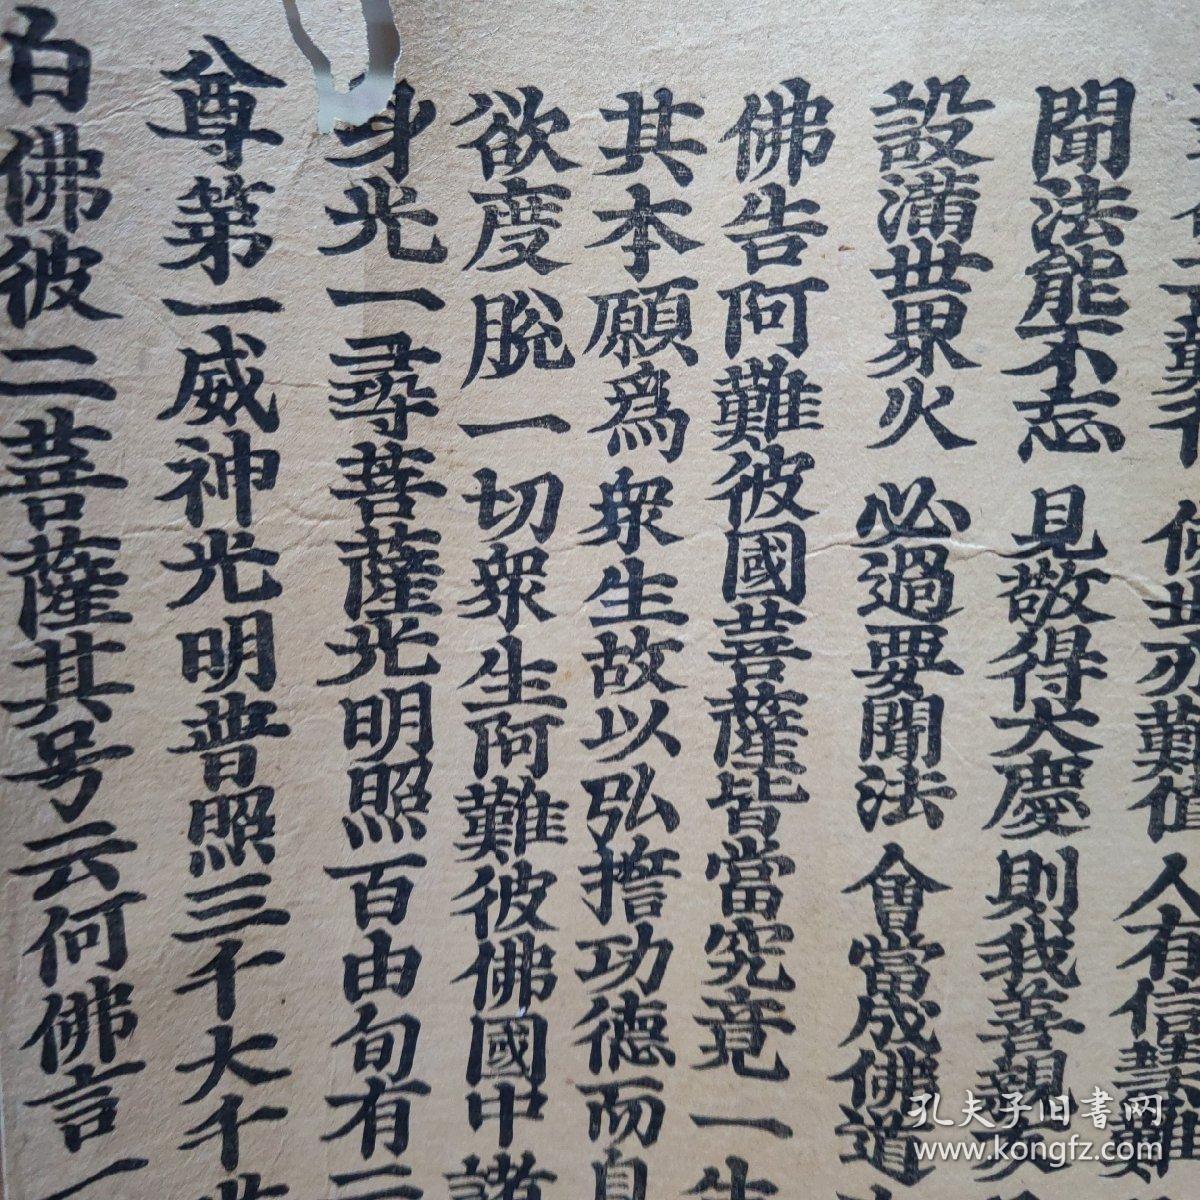 佛世亦難值 人有信慧難
聞法能不忘 見敬得大慶 則我善親
設滿世界火 必過要聞法 會當成佛道
佛告阿難彼國菩薩皆當究竟一生
其本願爲衆生故以弘誓功德而自
欲度脫一切衆生阿難彼佛國中諸
身光一尋菩薩光明照百由旬有二
尊第一威神光明普照三千大千世
白佛彼二菩薩其号云何佛言一
孔夫子旧書网
www.kongfz.com